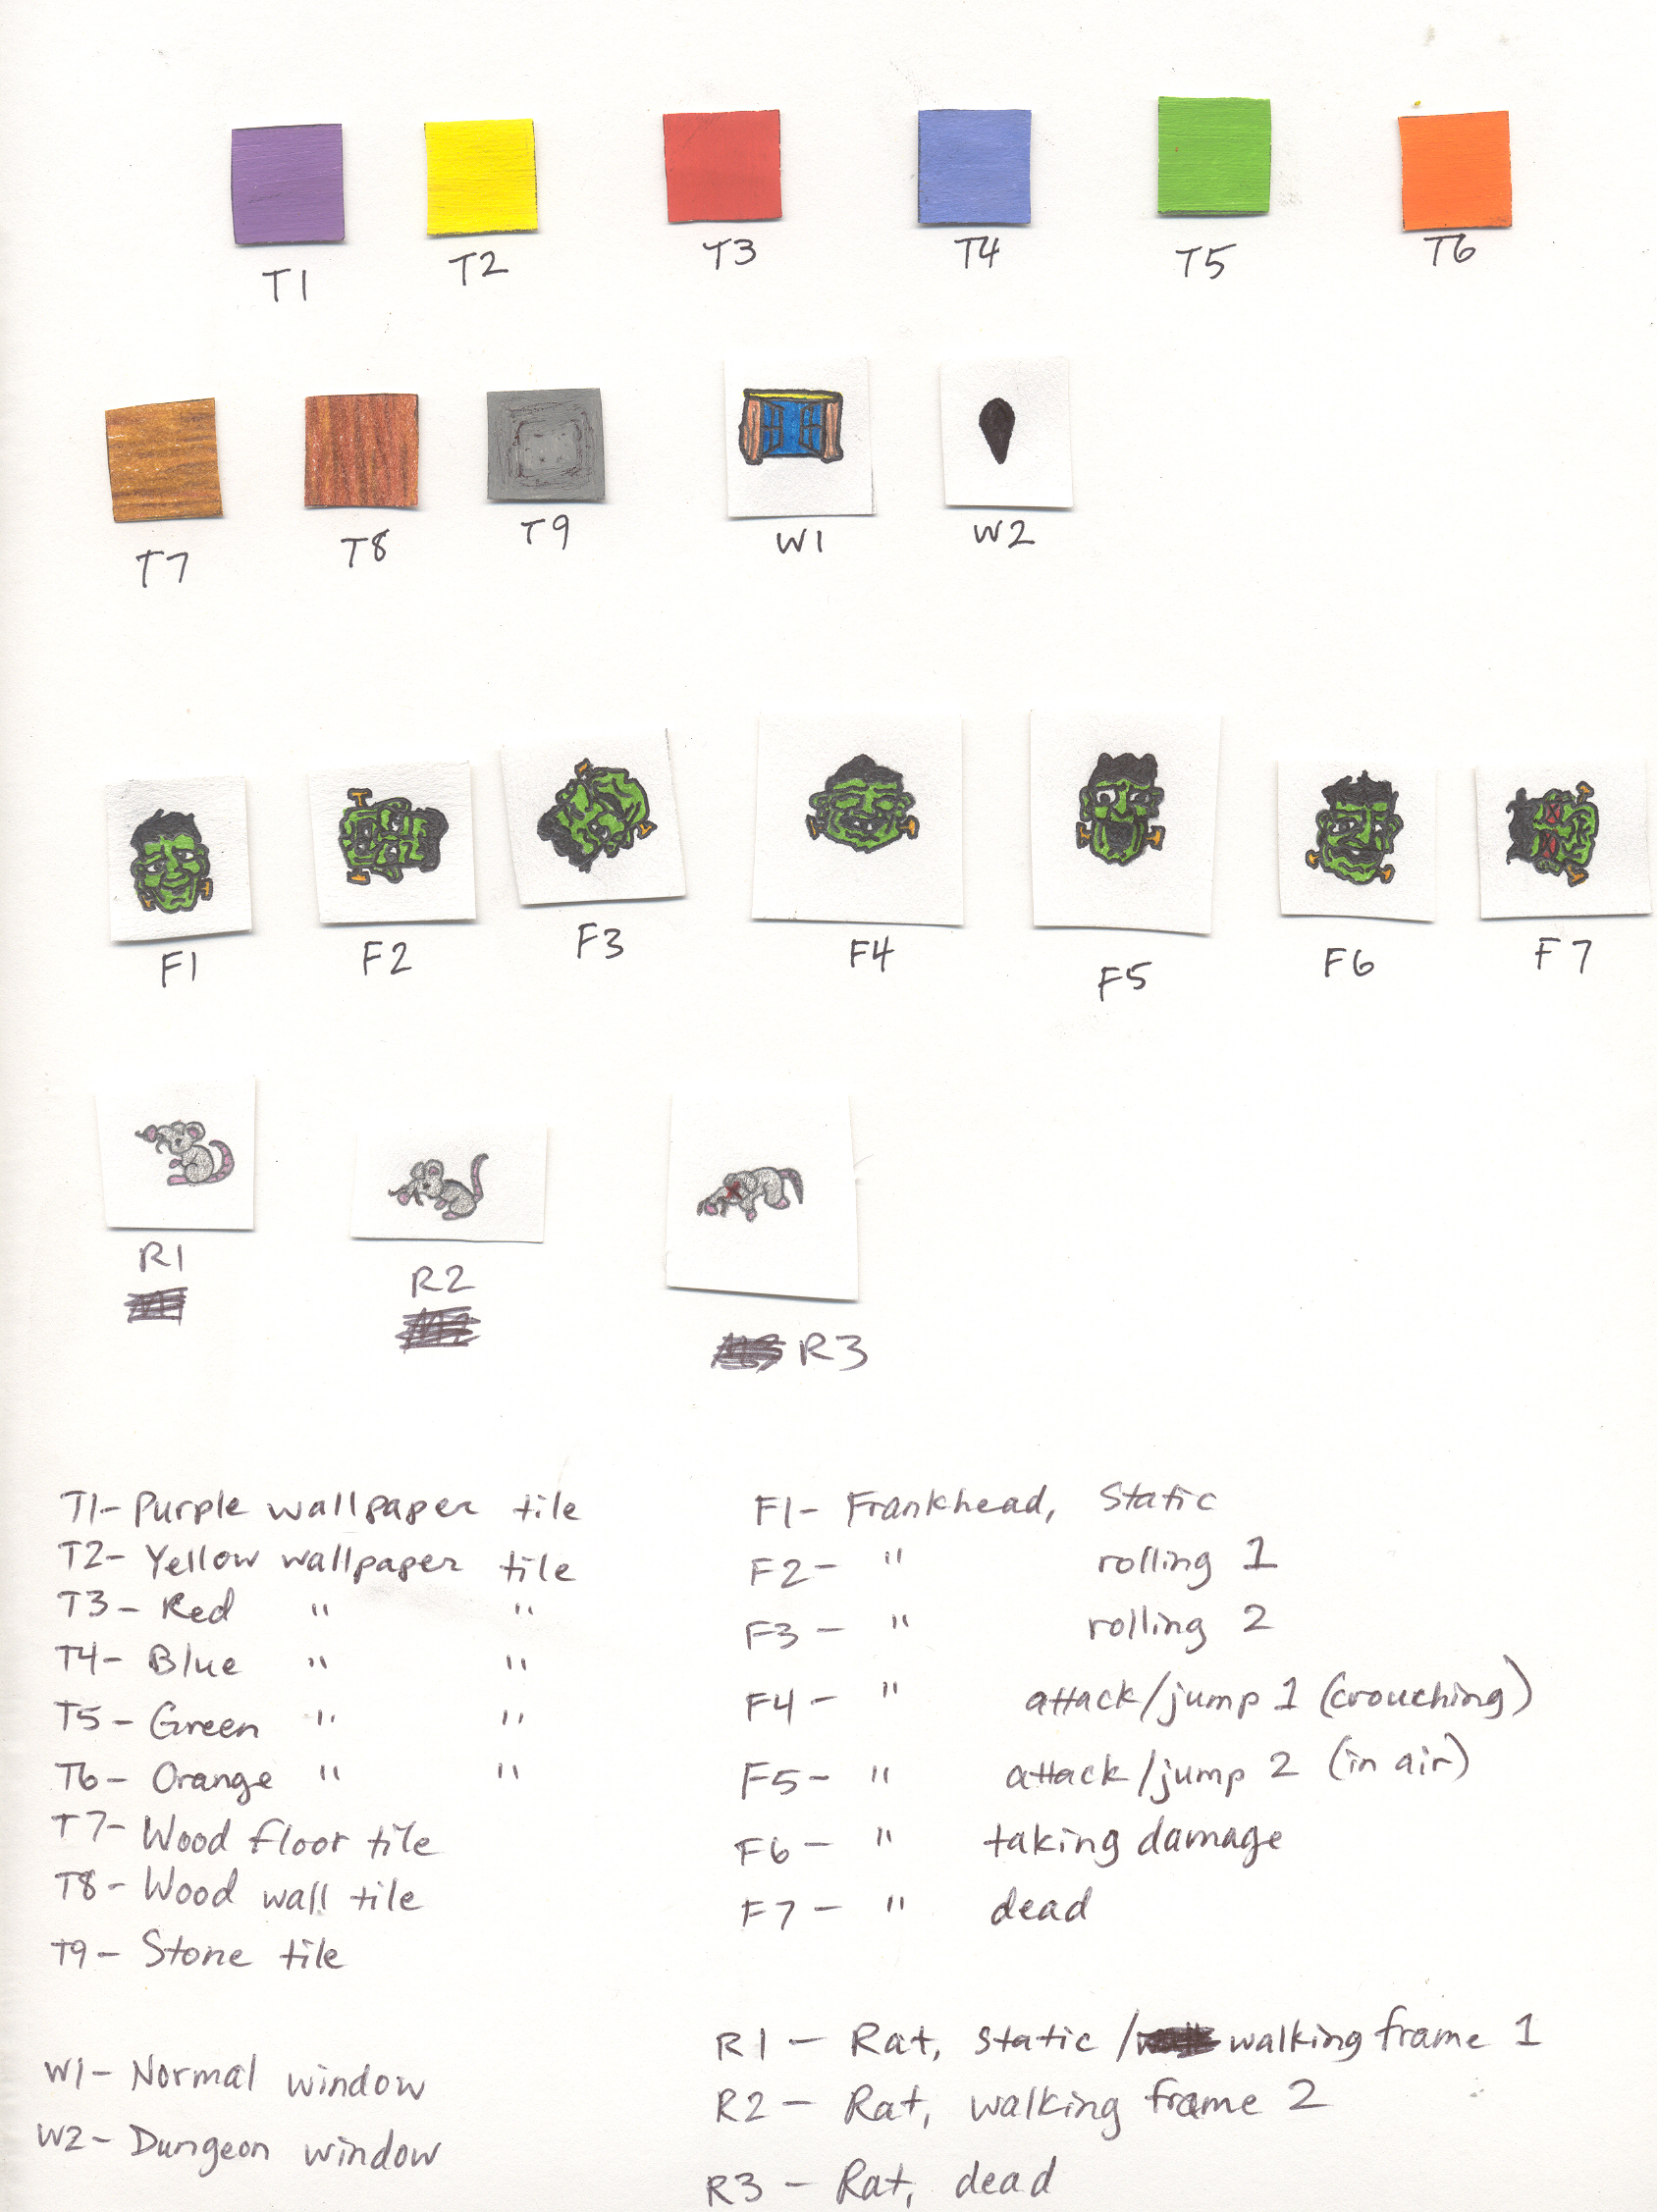 T1 T2 T3 T4 T5 T6
T7 T8 T9 W1 W2
F1 F2 F3 F4 F5 F6 F7
R1 R2 R3
T1- Purple wallpaper tile
T2- Yellow wallpaper tile
T3- Red " "
T4- Blue " "
T5- Green " "
T6- Orange " "
T7- Wood floor tile
T8- Wood wall tile
T9- Stone tile
W1- Normal window
W2- Dungeon window
F1- Frankhead, Static
F2- " rolling 1
F3- " rolling 2
F4- " attack/jump 1 (crouching)
F5- " attack/jump 2 (in air)
F6- " taking damage
F7- " dead
R1- Rat, static / walking frame 1
R2- Rat, walking frame 2
R3- Rat, dead